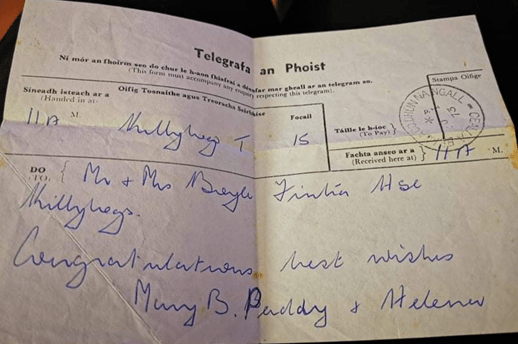 Telegrafa an Phoist
Ní mór an fhoirm seo do chur le h-aon fhiafraí a déufar mar gheall ar an telegram so.
(This form must accompany any enquiry respecting this telegram).
Stampa Oifige
Sineadh isteach ar a
(Handed in at:)
Oifig Tosnaithe agus Treoracha Seirbhíse
Focail
11A M. Killybegs T 15
Táille le h-íoc
(To Pay)
Fachta anseo ar a
(Received here at)
11A M.
DO
(TO.
Mr & Mrs Boyle Fintra Hse
Killybegs.
Congratulations best wishes
Mary B. Paddy & Helena